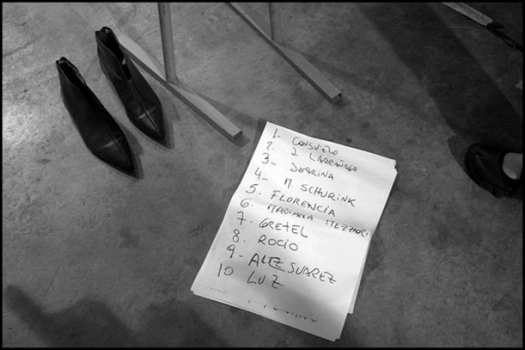 1. CONSUELO
2. J LARRAÑAGA
3- SABRINA
4- M. SCHURINK
5- FLORENCIA
6. MARIANA
7- GRETEL
8. ROCIO
9- ALEZ SUAREZ
10 LUZ